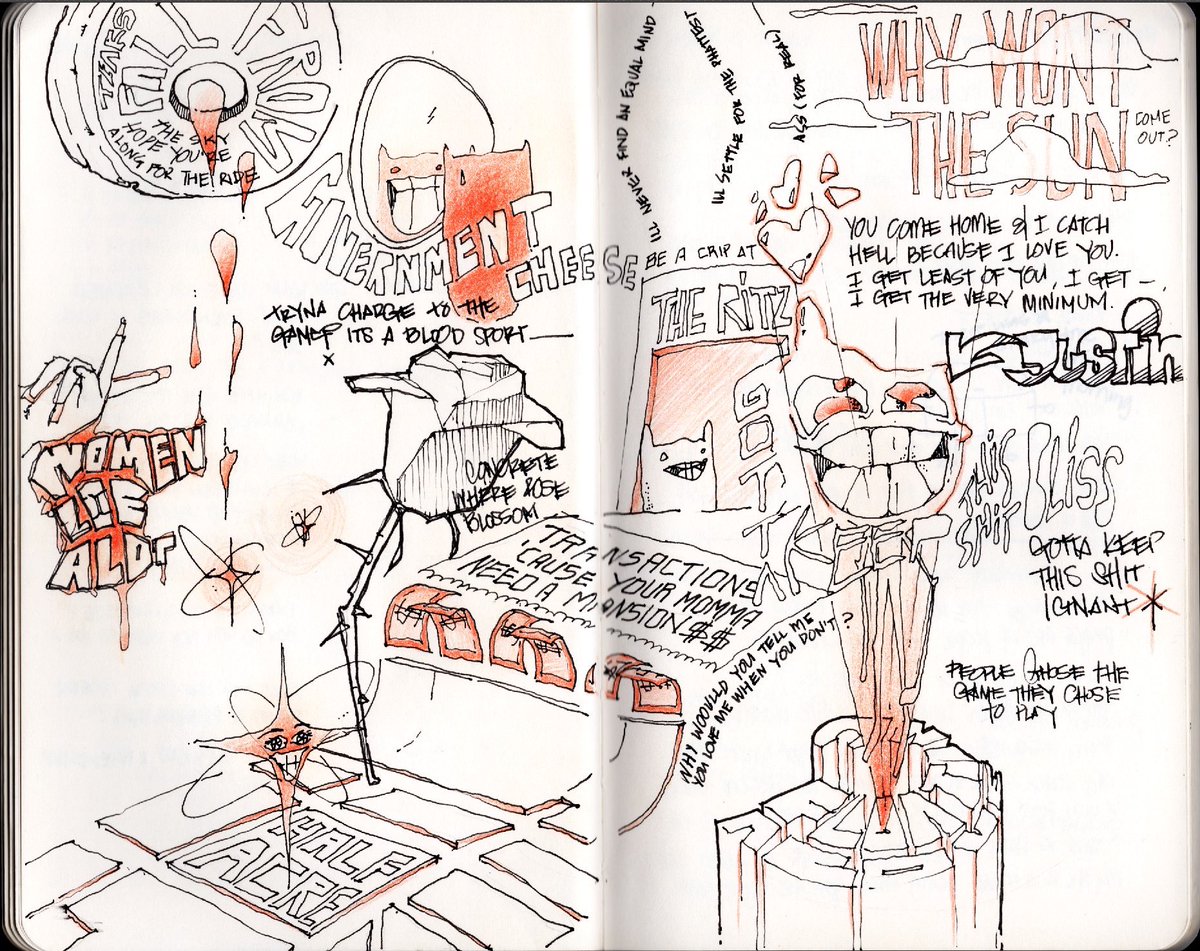 TEARS
FALL FROM
THE SKY
HOPE YOU'RE
ALONG FOR THE RIDE
GOVERNMENT
CHEESE
TRYNA CHARGE TO THE
GAME? ITS A BLOOD SPORT —
WOMEN
LIE
ALOT
CONCRETE
WHERE ROSE
BLOSSOM
TRANSACTIONS
'CAUSE YOUR MOMMA
NEED A MANSION $$
HALF
ACRE
ILL NEVER FIND AN EQUAL MIND
ILL SETTLE FOR THE PHATTEST
ASS (FOR REAL)
BE A CRIP AT
THE RITZ!
GOTTA
KEEP
WHY WONT
THE SUN
COME
OUT?
YOU COME HOME & I CATCH
HELL BECAUSE I LOVE YOU.
I GET LEAST OF YOU, I GET —,
I GET THE VERY MINIMUM.
THIS
SHIT
BLISS
GOTTA KEEP
THIS SHIT
IGNANT
PEOPLE CHOSE THE
GAME THEY CHOSE
TO PLAY
WHY WOOULLD YOU TELL ME
YOU LOVE ME WHEN YOU DON'T?